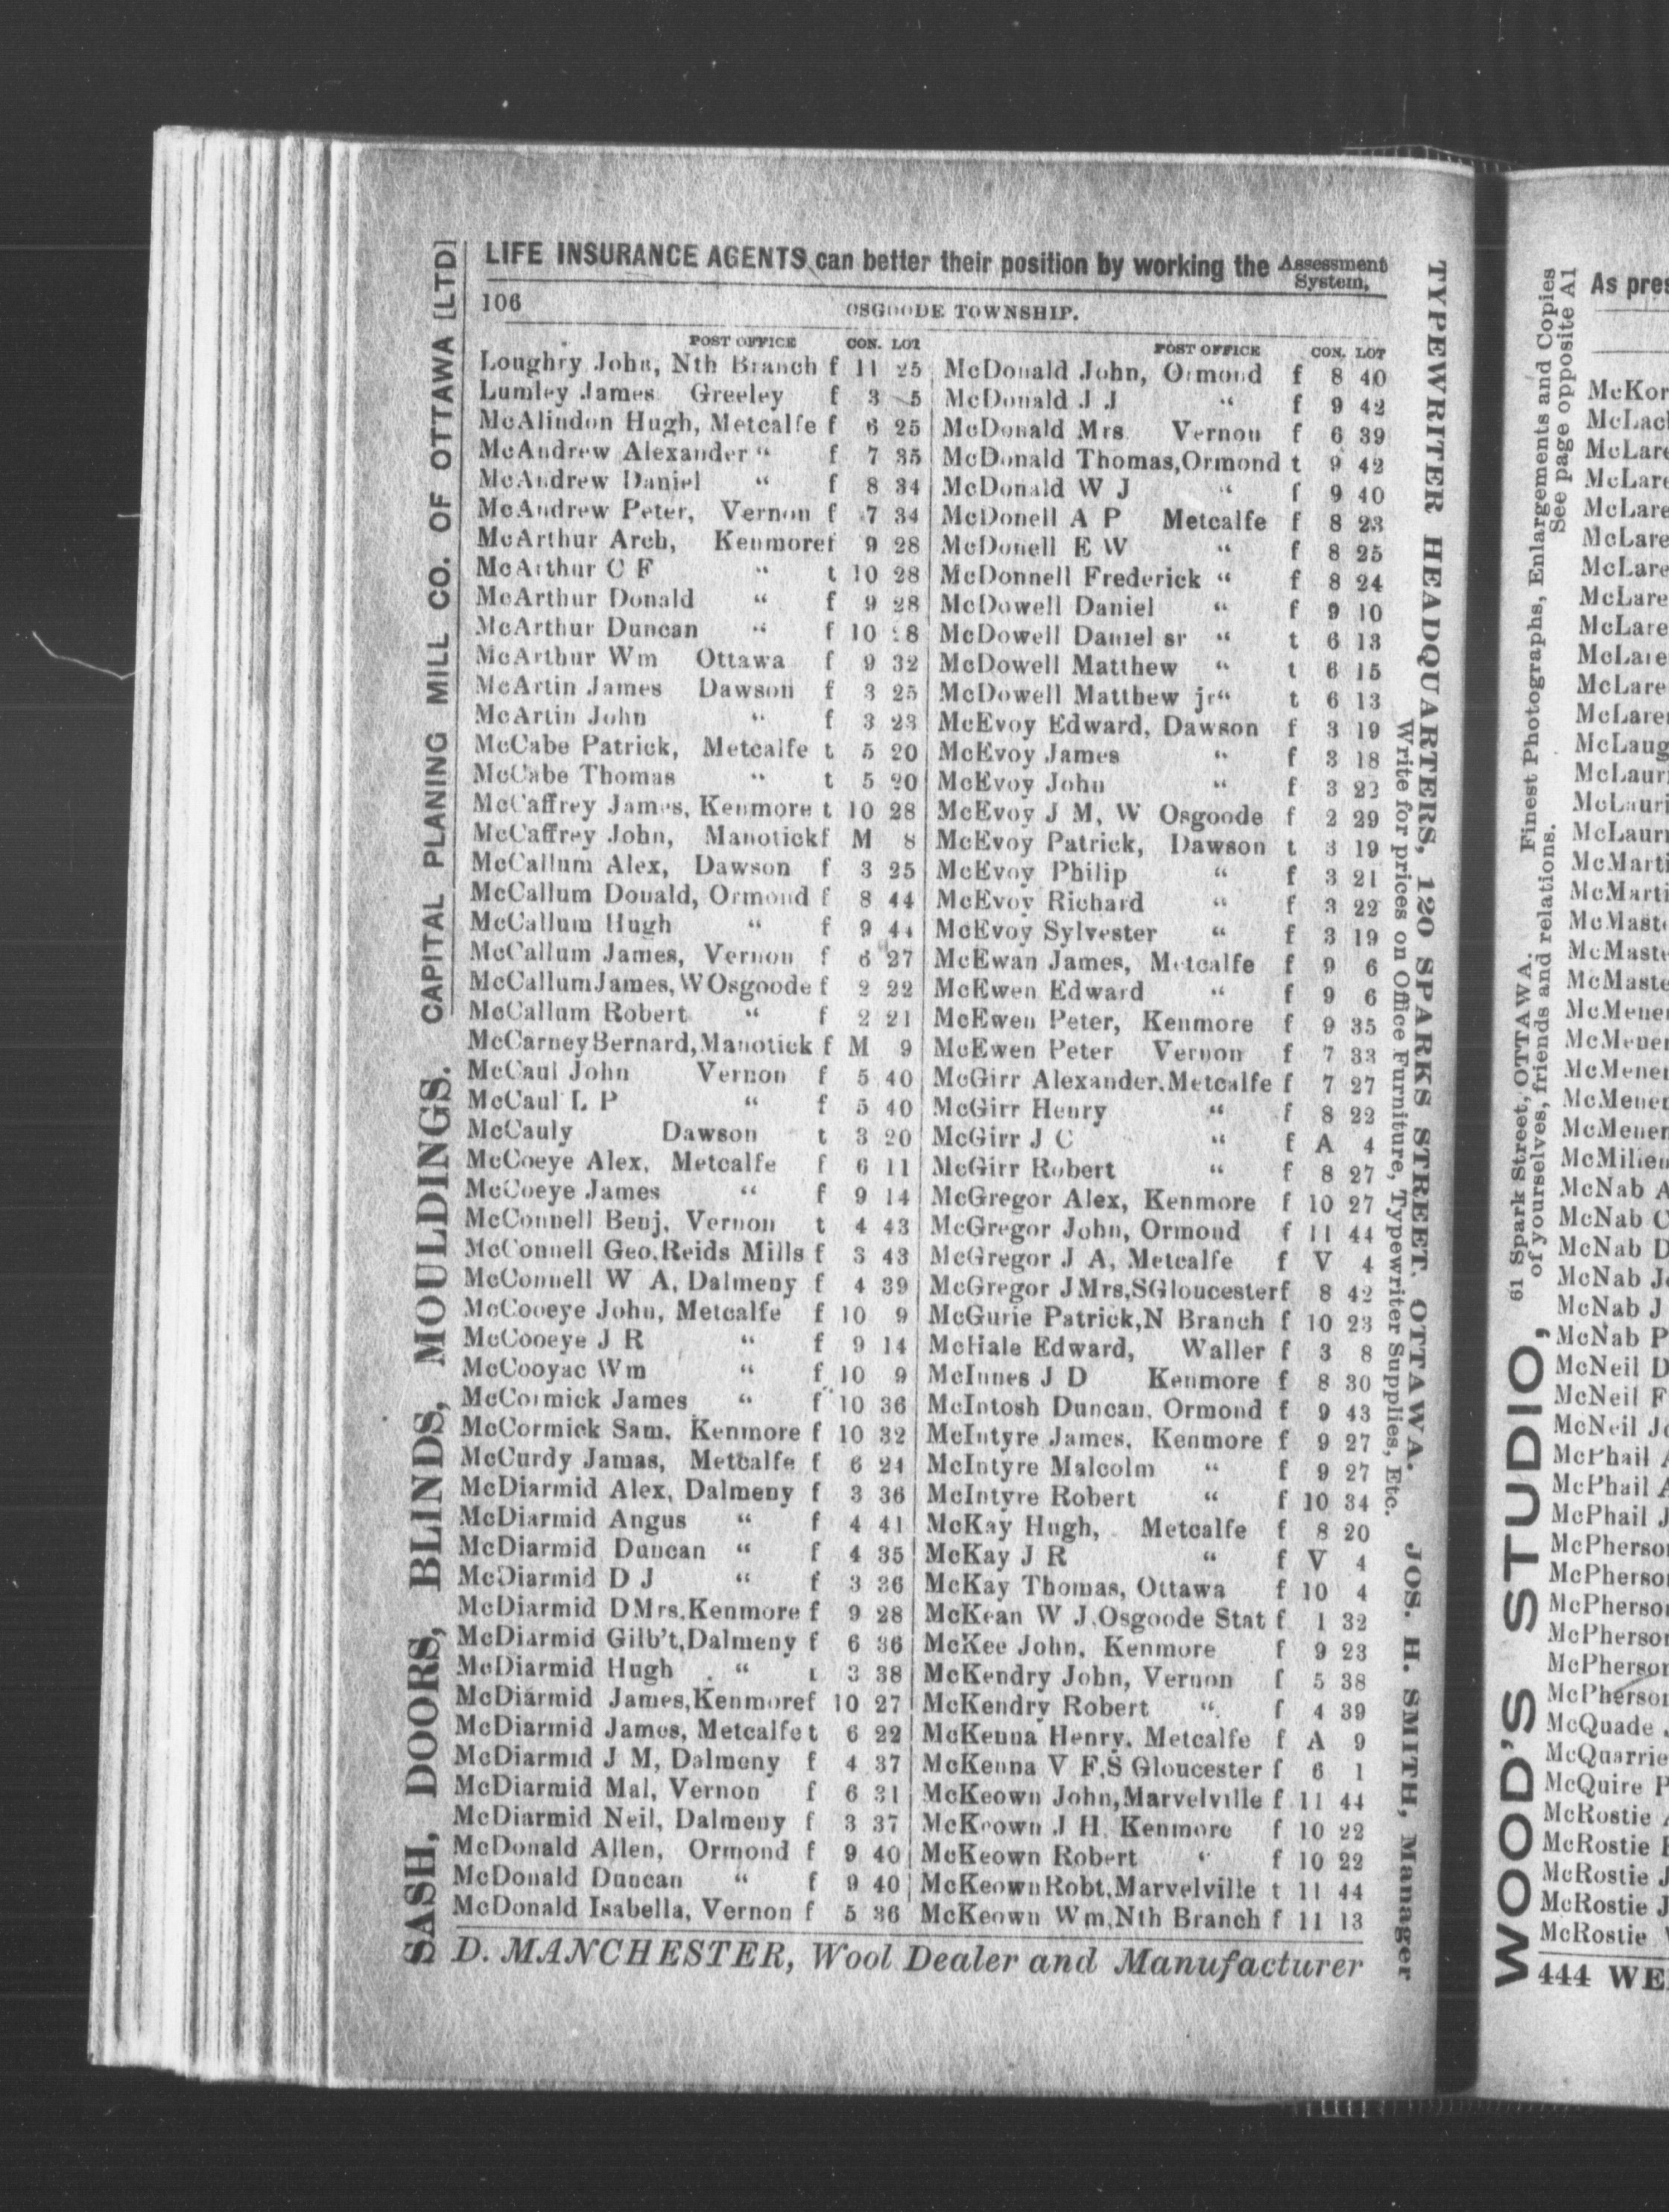 LIFE INSURANCE AGENTS can better their position by working the Assessment System,
106
OSGOODE TOWNSHIP.
POST OFFICE CON. LOT
Loughry John, Nth Branch f 11 25
Lumley James Greeley f 3 5
McAlindon Hugh, Metcalfe f 6 25
McAndrew Alexander " f 7 35
McAndrew Daniel " f 8 34
McAndrew Peter, Vernon f 7 34
McArthur Arch, Kenmore f 9 28
McArthur C F " t 10 28
McArthur Donald " f 9 28
McArthur Duncan " f 10 8
McArthur Wm Ottawa f 9 32
McArtin James Dawson f 3 25
McArtin John " f 3 23
McCabe Patrick, Metcalfe t 5 20
McCabe Thomas " t 5 20
McCaffrey James, Kenmore t 10 28
McCaffrey John, Manotick f M 8
McCallum Alex, Dawson f 3 25
McCallum Donald, Ormond f 8 44
McCallum Hugh " f 9 44
McCallum James, Vernon f 6 27
McCallum James, W Osgoode f 2 22
McCallum Robert " f 2 21
McCarney Bernard, Manotick f M 9
McCaul John Vernon f 5 40
McCaul L P " f 5 40
McCauly Dawson t 3 20
McCoeye Alex, Metcalfe f 6 11
McCoeye James " f 9 14
McConnell Benj, Vernon t 4 43
McConnell Geo, Reids Mills f 3 43
McConnell W A, Dalmeny f 4 39
McCooeye John, Metcalfe f 10 9
McCooeye J R " f 9 14
McCooyac Wm " f 10 9
McCormick James " f 10 36
McCormick Sam, Kenmore f 10 32
McCurdy Jamas, Metcalfe f 6 24
McDiarmid Alex, Dalmeny f 3 36
McDiarmid Angus " f 4 41
McDiarmid Duncan " f 4 35
McDiarmid D J " f 3 36
McDiarmid D Mrs, Kenmore f 9 28
McDiarmid Gilb't, Dalmeny f 6 36
McDiarmid Hugh " t 3 38
McDiarmid James, Kenmore f 10 27
McDiarmid James, Metcalfe t 6 22
McDiarmid J M, Dalmeny f 4 37
McDiarmid Mal, Vernon f 6 31
McDiarmid Neil, Dalmeny f 3 37
McDonald Allen, Ormond f 9 40
McDonald Duncan " f 9 40
McDonald Isabella, Vernon f 5 36
POST OFFICE CON. LOT
McDonald John, Ormond f 8 40
McDonald J J " f 9 42
McDonald Mrs Vernon f 6 39
McDonald Thomas, Ormond t 9 42
McDonald W J " f 9 40
McDonell A P Metcalfe f 8 23
McDonell E W " f 8 25
McDonnell Frederick " f 8 24
McDowell Daniel " f 9 10
McDowell Daniel sr " t 6 13
McDowell Matthew " t 6 15
McDowell Matthew jr " t 6 13
McEvoy Edward, Dawson f 3 19
McEvoy James " f 3 18
McEvoy John " f 3 22
McEvoy J M, W Osgoode f 2 29
McEvoy Patrick, Dawson t 3 19
McEvoy Philip " f 3 21
McEvoy Richard " f 3 22
McEvoy Sylvester " f 3 19
McEwan James, Metcalfe f 9 6
McEwen Edward " f 9 6
McEwen Peter, Kenmore f 9 35
McEwen Peter Vernon f 7 33
McGirr Alexander, Metcalfe f 7 27
McGirr Henry " f 8 22
McGirr J C " f A 4
McGirr Robert " f 8 27
McGregor Alex, Kenmore f 10 27
McGregor John, Ormond f 11 44
McGregor J A, Metcalfe f V 4
McGregor J Mrs, S Gloucester f 8 42
McGurie Patrick, N Branch f 10 23
McHale Edward, Waller f 3 8
McInnes J D Kenmore f 8 30
McIntosh Duncan, Ormond f 9 43
McIntyre James, Kenmore f 9 27
McIntyre Malcolm " f 9 27
McIntyre Robert " f 10 34
McKay Hugh, Metcalfe f 8 20
McKay J R " f V 4
McKay Thomas, Ottawa f 10 4
McKean W J, Osgoode Stat f 1 32
McKee John, Kenmore f 9 23
McKendry John, Vernon f 5 38
McKendry Robert " f 4 39
McKenna Henry, Metcalfe f A 9
McKenna V F, S Gloucester f 6 1
McKeown John, Marvelville f 11 44
McKeown J H, Kenmore f 10 22
McKeown Robert " f 10 22
McKeown Robt, Marvelville t 11 44
McKeown Wm, Nth Branch f 11 13
D. MANCHESTER, Wool Dealer and Manufacturer
SASH, DOORS, BLINDS, MOULDINGS. CAPITAL PLANING MILL CO. OF OTTAWA [LTD]
TYPEWRITER HEADQUARTERS, 120 SPARKS STREET, OTTAWA. JOS. H. SMITH, Manager
Write for prices on Office Furniture, Typewriter Supplies, Etc.
WOOD'S STUDIO,
61 Spark Street, OTTAWA. Finest Photographs, Enlargements and Copies
of yourselves, friends and relations. See page opposite A1
As pres
McKor
McLach
McLare
McLare
McLare
McLare
McLare
McLare
McLare
McLare
McLare
McLaren
McLaug
McLaur
McLauri
McLaurr
McMarti
McMarti
McMaste
McMaste
McMaste
McMener
McMener
McMener
McMener
McMener
McMillen
McNab A
McNab C
McNab D
McNab Jo
McNab J
McNab P
McNeil D
McNeil F
McNeil Jo
McPhail A
McPhail A
McPhail J
McPherson
McPherson
McPherson
McPherson
McPherson
McPherson
McQuade J
McQuarrie
McQuire P
McRostie A
McRostie
McRostie J
McRostie J
McRostie
444 WE